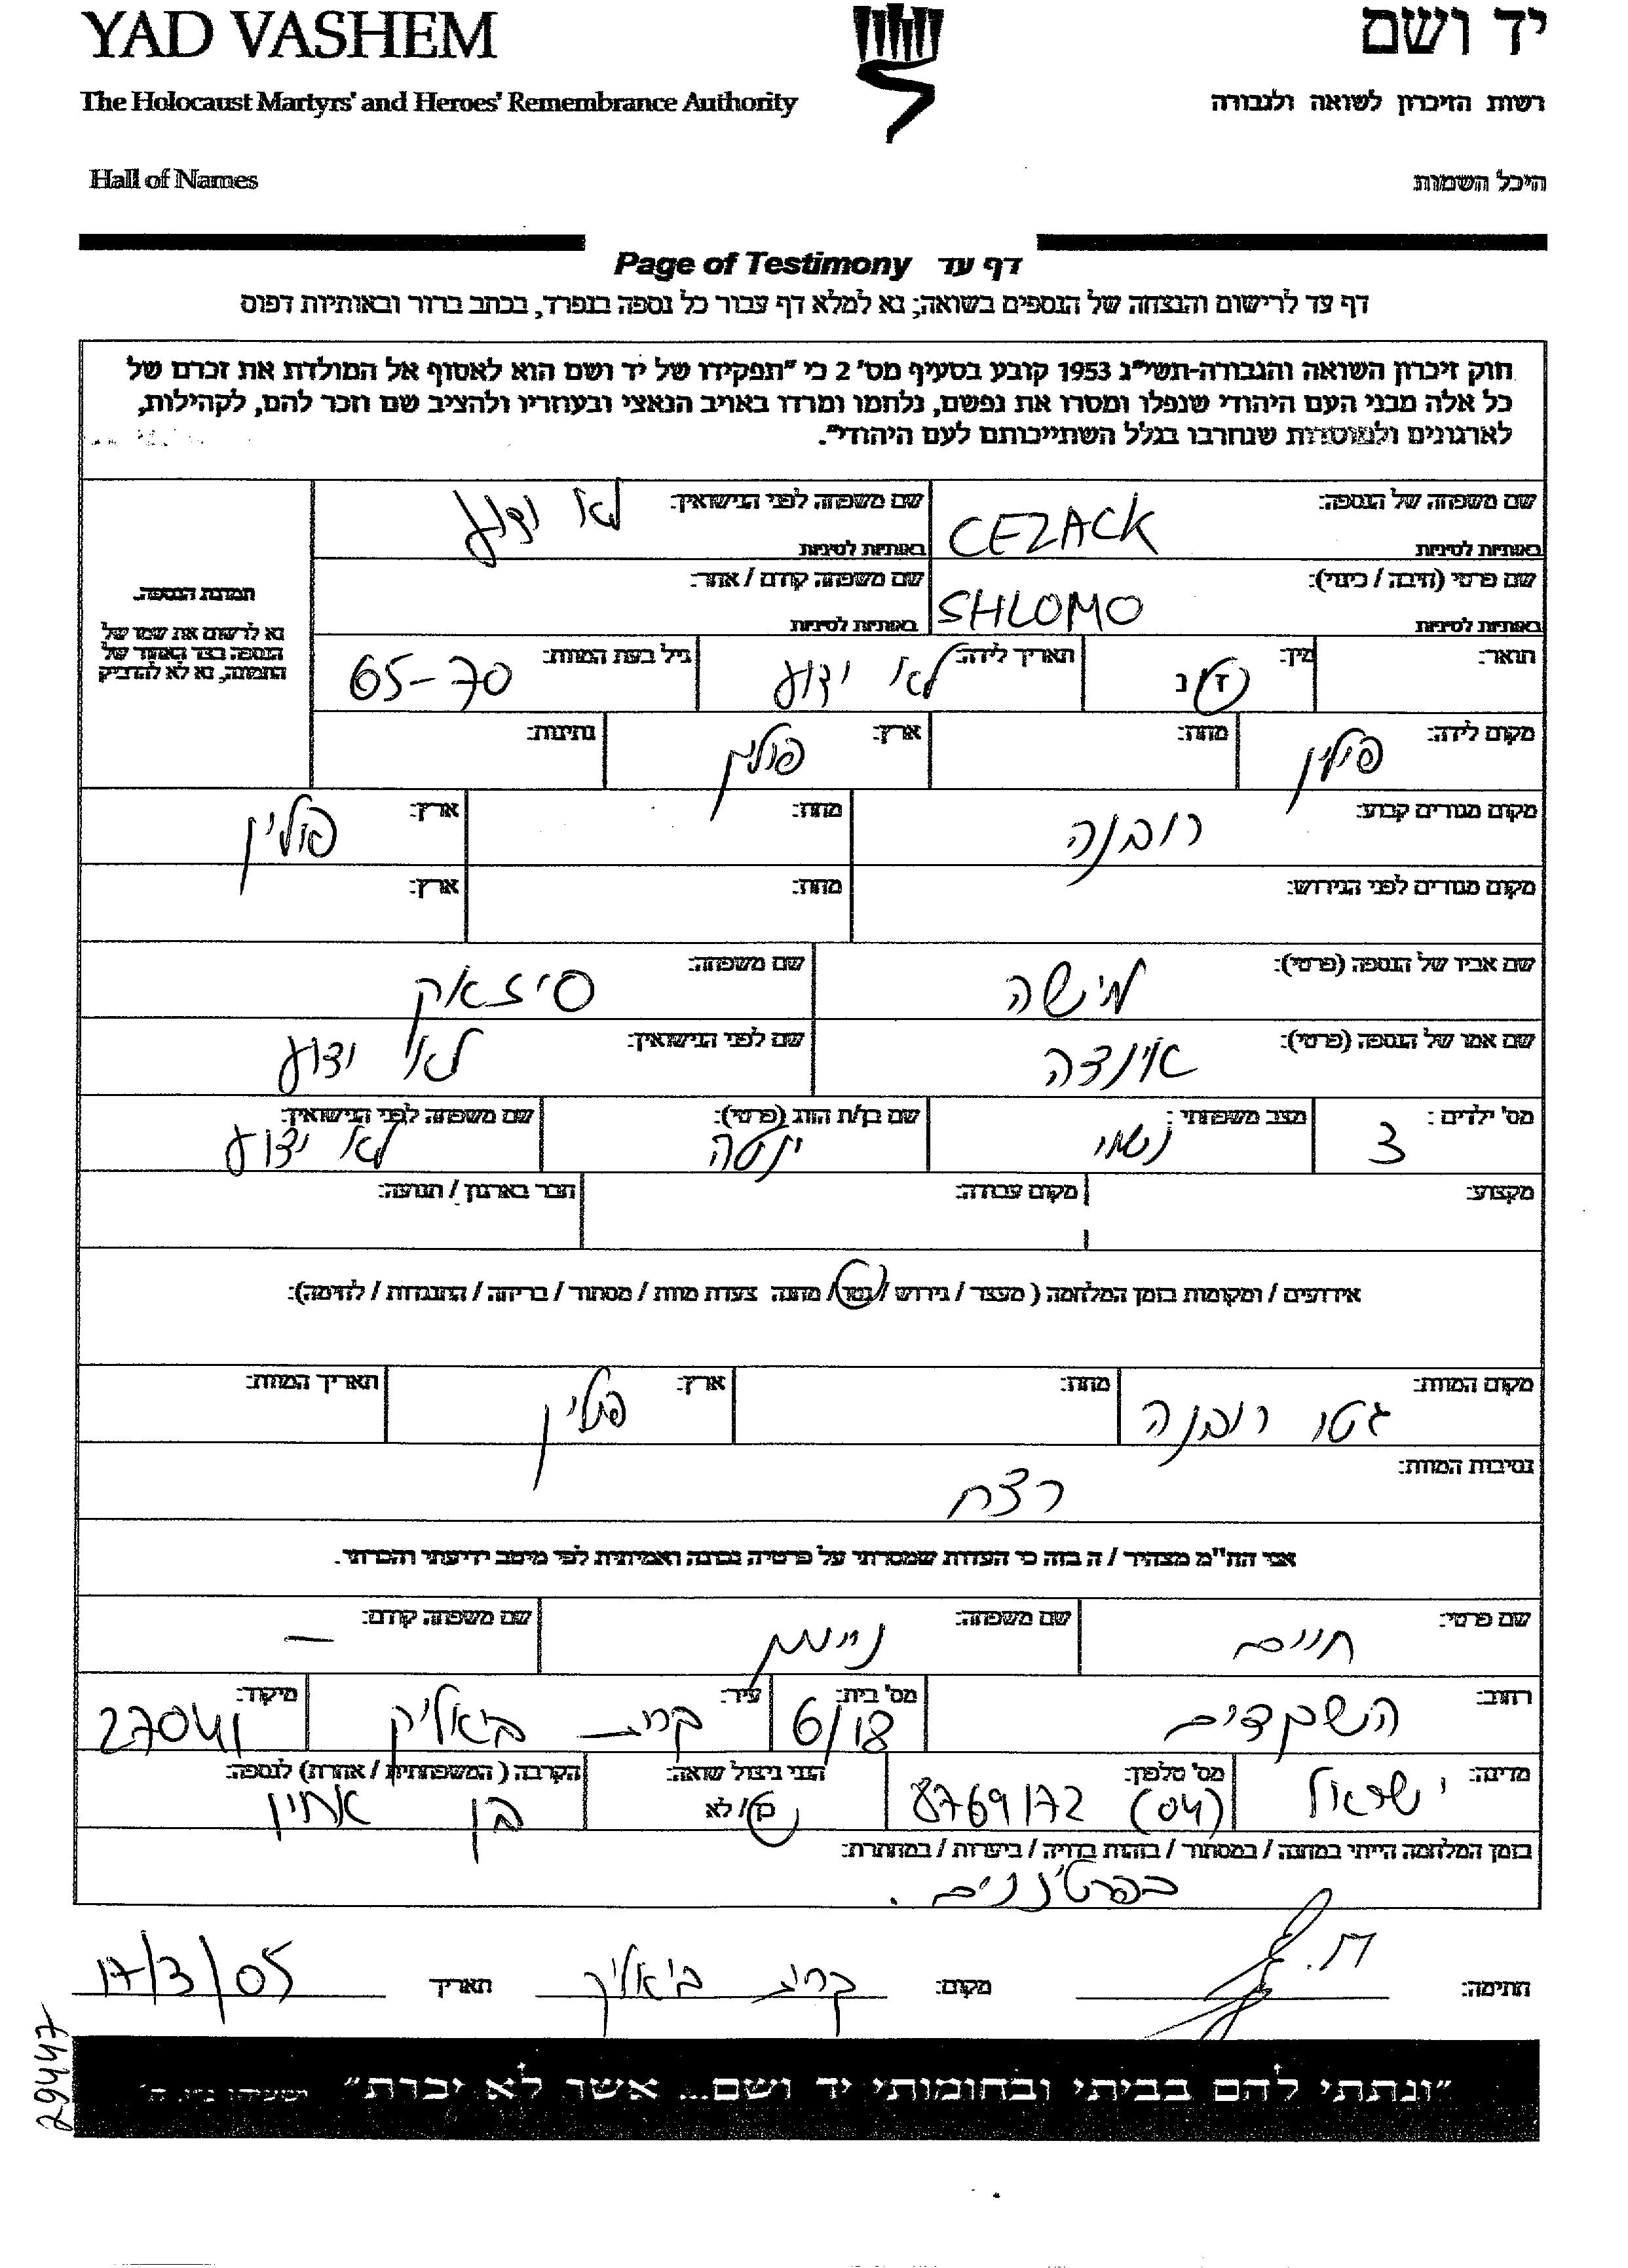 YAD VASHEM יד ושם
The Holocaust Martyrs' and Heroes' Remembrance Authority רשות הזיכרון לשואה ולגבורה
Hall of Names היכל השמות
Page of Testimony דף עד
דף עד לרישום והנצחה של הנספים בשואה; נא למלא דף עבור כל נספה בנפרד, בכתב ברור ובאותיות דפוס
חוק זיכרון השואה והגבורה-תשי"ג 1953 קובע בסעיף מס' 2 כי "תפקידו של יד ושם הוא לאסוף אל המולדת את זכרם של
כל אלה מבני העם היהודי שנפלו ומסרו את נפשם, נלחמו ומרדו באויב הנאצי ובעוזריו ולהציב שם וזכר להם, לקהילות,
לארגונים ולמוסדות שנחרבו בגלל השתייכותם לעם היהודי".
שם משפחה של הנספה: CEZACK שם משפחה לפני הנישואין: לא ידוע
באותיות לטיניות באותיות לטיניות
שם פרטי (חיבה / כינוי): SHLOMO שם משפחה קודם / אחר:
באותיות לטיניות באותיות לטיניות
תמונת הנספה.
נא לרשום את שמו של
הנספה בצד האחורי של
התמונה, נא לא להדביק
תואר: מין: ז / נ תאריך לידה: לא ידוע גיל בעת המוות: 65-70
מקום לידה: פולין מחוז: ארץ: פולין נתינות:
מקום מגורים קבוע: רובנה מחוז: ארץ: פולין
מקום מגורים לפני הגירוש: מחוז: ארץ:
שם אביו של הנספה (פרטי): מישה שם משפחה: סיזאק
שם אמו של הנספה (פרטי): אינדה שם לפני הנישואין: לא ידוע
מס' ילדים: 3 מצב משפחתי: נשוי שם בן/ת הזוג (פרטי): יטה שם משפחה לפני הנישואין: לא ידוע
מקצוע: מקום עבודה: חבר בארגון / תנועה:
אירועים / ומקומות בזמן המלחמה ( מעצר / גירוש / גטו / מחנה צעדת מוות / מסתור / בריחה / התנגדות / לחימה):
מקום המוות: גטו רובנה מחוז: ארץ: פולין תאריך המוות:
נסיבות המוות: רצח
אני הח"מ מצהיר / ה בזה כי העדות שמסרתי על פרטיה נכונה ואמיתית לפי מיטב ידיעתי והכרתי.
שם פרטי: חיים שם משפחה: ניימן שם משפחה קודם: –
רחוב: השקדים מס' בית: 6/18 עיר: קרית ביאליק מיקוד: 27041
מדינה: ישראל מס' טלפון: (04) 8769172 הנני ניצול שואה: כן / לא הקרבה ( המשפחתית / אחרת) לנספה: בן אחין
בזמן המלחמה הייתי במחנה / במסתור / בזהות בדויה / ביערות / במחתרת:
בפרטיזנים.
חתימה: מקום: קרית ביאליק תאריך 17/3/05
"ונתתי להם בביתי ובחומותי יד ושם... אשר לא יכרת" ישעיהו נ"ו, ה'